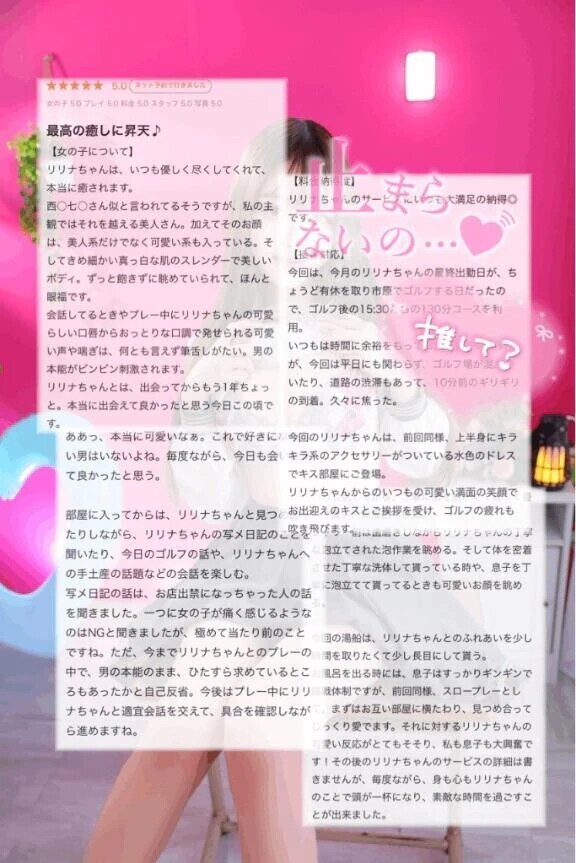 ★★★★★ 5.0 ネット予約で行きました
女の子 5.0 プレイ 5.0 料金 5.0 スタッフ 5.0 写真 5.0
最高の癒しに昇天♪
【女の子について】
リリナちゃんは、いつも優しく尽くしてくれて、
本当に癒されます。
西○七○さん似と言われてるそうですが、私の主
観ではそれを越える美人さん。加えてそのお顔
は、美人系だけでなく可愛い系も入っている。そ
してきめ細かい真っ白な肌のスレンダーで美しい
ボディ。ずっと飽きずに眺めていられて、ほんと
眼福です。
会話してるときやプレー中にリリナちゃんの可愛
らしい口唇からおっとりな口調で発せられる可愛
い声や喘ぎは、何とも言えず筆舌しがたい。男の
本能がビンビン刺激されます。
リリナちゃんとは、出会ってからもう1年ちょっ
と。本当に出会えて良かったと思う今日この頃で
す。
ああっ、本当に可愛いなぁ。これで好きにな
い男はいないよね。毎度ながら、今日も会い
て良かったと思う。
部屋に入ってからは、リリナちゃんと見つめ
たりしながら、リリナちゃんの写メ日記のことを
聞いたり、今日のゴルフの話や、リリナちゃんへ
の手土産の話題などの会話を楽しむ。
写メ日記の話は、お店出禁になっちゃった人の話
を聞きました。一つに女の子が痛く感じるような
のはNGと聞きましたが、極めて当たり前のこと
ですね。ただ、今までリリナちゃんとのプレーの
中で、男の本能のまま、ひたすら求めているとこ
ろもあったかと自己反省。今後はプレー中にリリ
ナちゃんと適宜会話を交えて、具合を確認しなが
ら進めますね。
止まら
ないの…
推して?
【料金納得度】
リリナちゃんのサービスにいつも大満足の納得◎
です。
今回は、今月のリリナちゃんの最終出勤日が、ち
ょうど有休を取り市原でゴルフする日だったの
で、ゴルフ後の15:30からの130分コースを利
用。
いつもは時間に余裕をもっ
が、今回は平日にも関わらず、ゴルフ場が混
いたり、道路の渋滞もあって、10分前のギリギリ
の到着。久々に焦った。
今回のリリナちゃんは、前回同様、上半身にキラ
キラ系のアクセサリーがついている水色のドレス
でキス部屋にご登場。
リリナちゃんからのいつもの可愛い満面の笑顔で
お出迎えのキスとご挨拶を受け、ゴルフの疲れも
吹き飛びます。
前は歯磨きしながらリリナちゃんの丁寧
な泡立てされた泡作業を眺める。そして体を密着
させた丁寧な洗体して貰っている時や、息子を丁
寧に泡立てて貰ってるときも可愛いお顔を眺め
る。
今回の湯船は、リリナちゃんとのふれあいを少し
時間を取りたくて少し長目にして貰う。
お風呂を出る時には、息子はすっかりギンギンで
戦体制ですが、前回同様、スロープレーとし
て、まずはお互い部屋に横たわり、見つめ合って
じっくり愛でます。それに対するリリナちゃんの
可愛い反応がとてもそそり、私も息子も大興奮で
す！その後のリリナちゃんのサービスの詳細は書
きませんが、毎度ながら、身も心もリリナちゃん
のことで頭が一杯になり、素敵な時間を過ごすこ
とが出来ました。